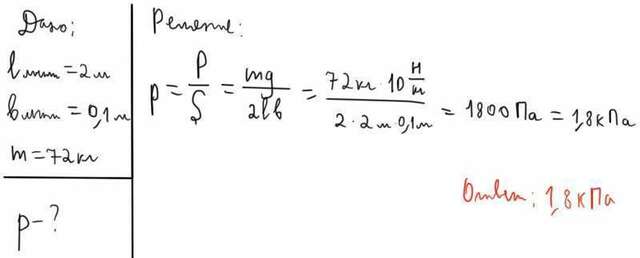 Дано:
l лыж = 2 м
b лыж = 0,1 м
m = 72 кг
p - ?
Решение:
p = P/S = mg/2lb = 72кг · 10 Н/м / 2 · 2 м · 0,1 м = 1800 Па = 1,8 кПа
Ответ: 1,8 кПа